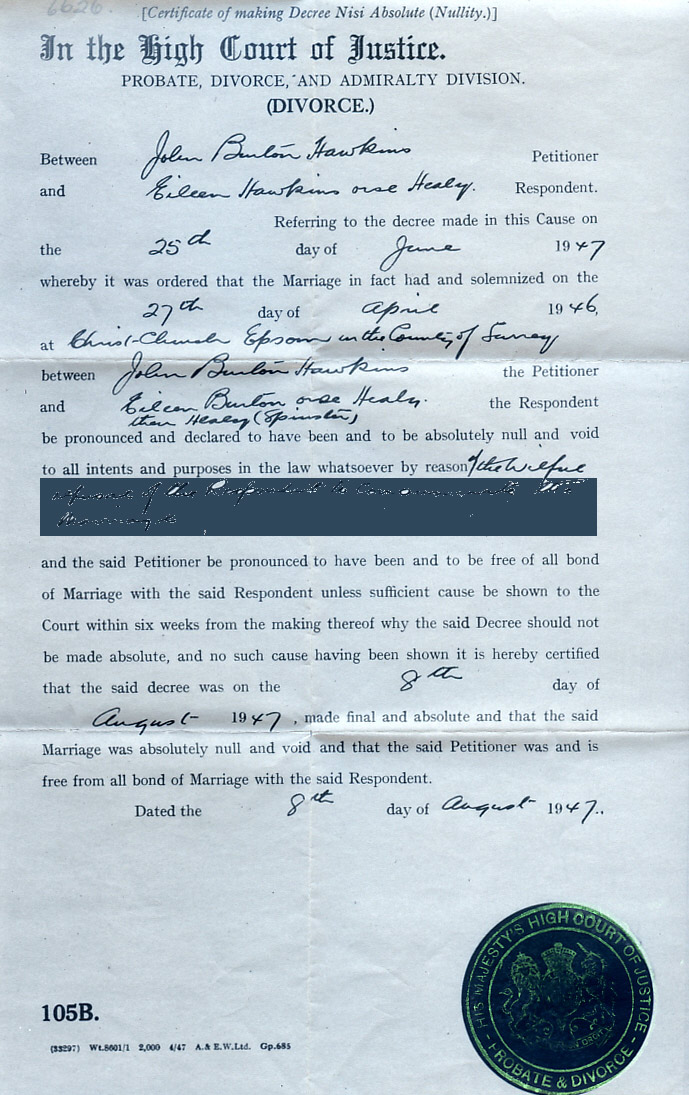 6626.
[Certificate of making Decree Nisi Absolute (Nullity.)]
In the High Court of Justice.
PROBATE, DIVORCE, AND ADMIRALTY DIVISION.
(DIVORCE.)
Between John Burton Hawkins Petitioner
and Eileen Hawkins orse Healy. Respondent.
Referring to the decree made in this Cause on
the 25th day of June 1947
whereby it was ordered that the Marriage in fact had and solemnized on the
27th day of April 1946,
at Christ-Church Epsom in the County of Surrey
between John Burton Hawkins the Petitioner
and Eileen Burton orse Healy. the Respondent
then Healy (Spinster)
be pronounced and declared to have been and to be absolutely null and void
to all intents and purposes in the law whatsoever by reason of the Wilful
refusal of the Respondent to consummate the
Marriage
and the said Petitioner be pronounced to have been and to be free of all bond
of Marriage with the said Respondent unless sufficient cause be shown to the
Court within six weeks from the making thereof why the said Decree should not
be made absolute, and no such cause having been shown it is hereby certified
that the said decree was on the 8th day of
August 1947, made final and absolute and that the said
Marriage was absolutely null and void and that the said Petitioner was and is
free from all bond of Marriage with the said Respondent.
Dated the 8th day of August 1947.
105B.
(33297) Wt.8601/1 2,000 4/47 A.& E.W.Ltd. Gp.685
HIS MAJESTY'S HIGH COURT OF JUSTICE
PROBATE & DIVORCE